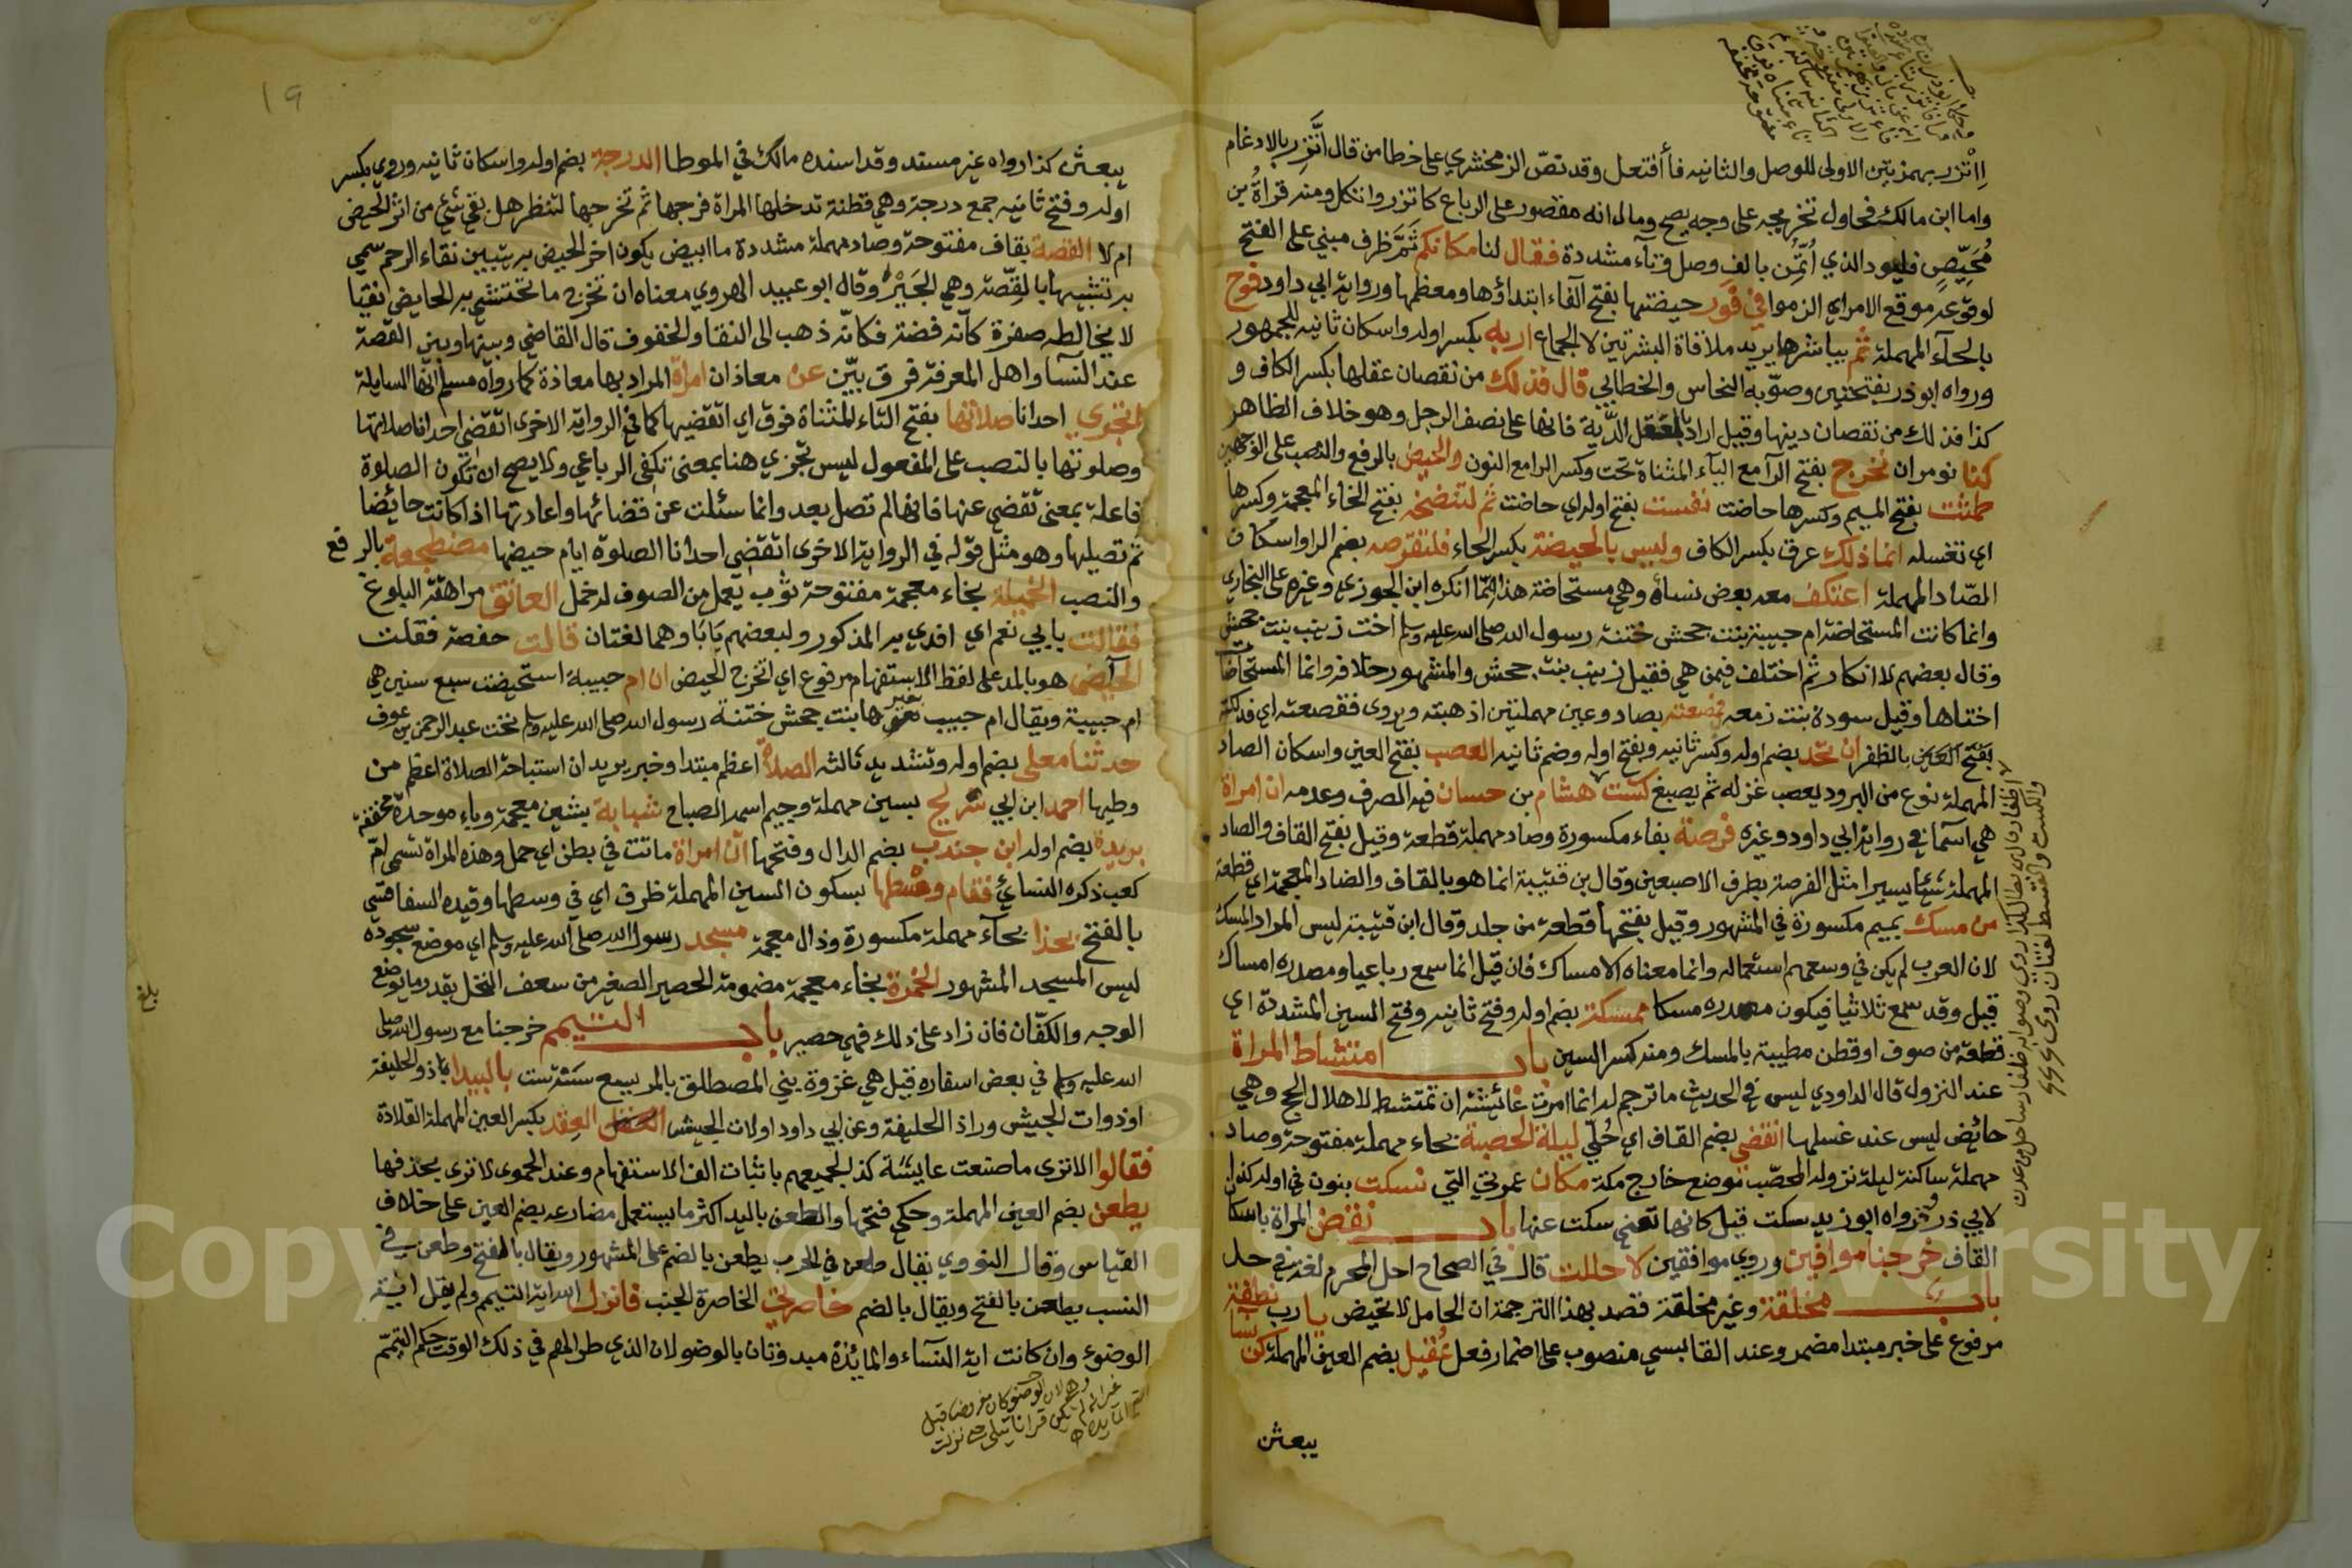 اِاْتْزر بهمزتين الاولى للوصل والثانيه فأ أفتعل وقد نصّ الزمخشري على خطا من قال اتَّزر بالادغام
واما ابن مالك فحاول تخريجه على وجه يصح وما له انه مقصور على الرباع كاتزر واتكل ومنه قراة ابن
مُحَيصِن فليود الذي اُتُّمِن بالف وصل وتآء مشددة فقال لنا مكانكم ثَمَّ ظرف مبني على الفتح
لوقوعه موقع الامر اي الزموا في فَور حيضتها بفتح الفاء ابتداؤها ومعظمها ورواية ابي داود فوح
بالحآء المهملة ثم يباشرها يريد ملاقاة البشرتين لا الجماع اربه بكسر اوله واسكان ثانيه للجمهور
ورواه ابو ذر بفتحتين وصوّبه النحاس والخطابي قال فذلك من نقصان عقلها بكسر الكاف و
كذا فذلك من نقصان دينها وقيل اراد بالعقل الدّية فانها على نصف الرجل وهو خلاف الظاهر
كنا نومر ان نخرج بفتح الرآ مع اليآء المثناة تحت وكسر الرا مع النون والحيض بالرفع والنصب على الوجهين
طمثت بفتح الميم وكسرها حاضت نفست بفتح اوله اي حاضت ثم لتنضخه بفتح الخاء المعجمة وكسرها
اي تغسله انما ذلك عرق بكسر الكاف وليس بالحيضة بكسر الحاء فلتقرصه بضم الرا واسكان
الصّاد المهملة اعتكف معه بعض نسائه وهي مستحاضة هذا ممّا انكره ابن الجوزي وغيره على البخاري
وانما كانت المستحاضة ام حبيبة بنت جحش ختنة رسول الله صلى الله عليه وسلم اخت زينب بنت جحش
وقال بعضهم لا انكار ثم اختلف فيمن هي فقيل زينب بنت جحش والمشهور خلافه وانما المستحاضة
اختاها وقيل سودة بنت زمعه فصعته بصاد وعين مهملتين اذهبته ويروى فقصعته اي فدلكته
بفتح العين بالظفر ان تحد بضم اوله وكسر ثانيه وبفتح اوله وضم ثانيه العصب بفتح العين واسكان الصاد
المهملة نوع من البرود يعصب غزله ثم يصبغ كست هشام بن حسان فيه الصرف وعدمه ان امراة
هي اسمآ في رواية ابي داود وغيره فرصة بفاء مكسورة وصاد مهملة قطعة وقيل بفتح القاف والصاد
المهملة شيئا يسيرا مثل القرصة بطرف الاصبعين وقال بن قتيبة انما هو بالقاف والضاد المعجمة اي قطعة
من مسك بميم مكسورة في المشهور وقيل بفتحها قطعة من جلد وقال ابن قتيبة ليس المراد المسك
لان العرب لم يكن في وسعهم استعماله وانما معناه الامساك فان قيل انما سمع رباعيا ومصدره امساك
قيل وقد سمع ثلاثيا فيكون مصدره مسكا ممسكة بضم اوله وفتح ثانيه وفتح السين المشددة اي
قطعة من صوف او قطن مطيبة بالمسك ومنه كسر السين باب امتشاط المراة
عند النزول قال الداودي ليس في الحديث ما ترجم له انما امرت عائيشة ان تمتشط لاهلال الحج وهي
حائض ليس عند غسلها انقضي بضم القاف اي حُلّي ليلة الحصبة بحاء مهملة مفتوحة وصاد
مهملة ساكنة ليلة نزوله المحصّب موضع خارج مكة مكان عمرتي التي نسكت بنون في اوله كذا
لابي ذر ورواه ابو زيد سكت قيل كانها تعني سكت عنها باب نقض المراة باسكان
القاف خرجنا موافين وروي موافقين لاحللت قال في الصحاح احل المحرم لغة في حل
باب مخلقة وغير مخلقة قصد بهذا الترجمة ان الحامل لا تحيض يا رب نطفة
مرفوع على خبر مبتدا مضمر وعند القابسي منصوب على اضمار فعل عُقيل بضم العين المهملة كن نسا
يبعثن
١٩
يبعثن كذا رواه غير مسند وقد اسنده مالك في الموطا الدرجة بضم اوله واسكان ثانيه وروي بكسر
اوله وفتح ثانيه جمع درجة وهي قطنة تدخلها المراة فرجها ثم تخرجها لتنظر هل بقي شئي من اثر الحيض
ام لا القصة بقاف مفتوحة وصاد مهملة مشددة ما ابيض يكون اخر الحيض به يتبين نقاء الرحم سمي
به تشبيها بالقصّة وهي الجَيْرُ وقال ابو عبيد الهروي معناه ان تخرج ما تحتشي به الحايض نقيا
لا يخالطه صفرة كانّه فضة فكانّه ذهب الى النقا والخفوف قال القاضي وبينها وبين القصة
عند النسآ واهل المعرفة فرق بيّن عن معاذ ان امراة المراد بها معاذة كما رواه مسلم انّها السايلة
اتجزي احدانا صلاتها بفتح التاء المثناة فوق اي اتقضيها كما في الرواية الاخرى اتقضي احدانا صلاتها
وصلوتها بالنصب على المفعول ليس تجزي هنا بمعنى تكفي الرباعي ولا يصح ان تكون الصلوة
فاعلة بمعنى تقضي عنها فانها لم تصل بعد وانما سئلت عن قضائها واعادتها اذا كانت حائضا
ثم تصليها وهو مثل قوله في الرواية الاخرى اتقضي احدانا الصلوة ايام حيضها مضطجعة بالرفع
والنصب الخميلة بخاء معجمة مفتوحة ثوب يعمل من الصوف له خمل العاتق مراهقة البلوغ
فقالت بابي نعم اي افدي به المذكور ولبعضهم يَابَا وهما لغتان قالت حفصة فقلت
الحيّض هو بالمد على لفظ الاستفهام مرفوع اي اتخرج الحيض ان ام حبيبة استحيضت سبع سنين هي
ام حبيبة ويقال ام حبيب بغير ها بنت جحش ختنة رسول الله صلى الله عليه وسلم تحت عبد الرحمن بن عوف
حدثنا معلى بضم اوله وتشديد ثالثه الصلاة اعظم مبتدا وخبر يريد ان استباحة الصلاة اعظم من
وطيها احمد ابن ابي سريج بسين مهملة وجيم اسمه الصباح شبابة بشين معجمة وباء موحدة مخففة
بريدة بضم اوله ابن جندب بضم الدال وفتحها انّ امراة ماتت في بطن اي حمل وهذه المراة تسمى امّ
كعب ذكره النسائي فقام وسْطها بسكون السين المهملة ظرف اي في وسطها وقيده السفاقسي
بالفتح بحذا بحآء مهملة مكسورة وذال معجمة مسجد رسول الله صلى الله عليه وسلم اي موضع سجوده
ليس المسجد المشهور الخمرة بخاء معجمة مضمومة الحصير الصغير من سعف النخل بقدر ما يوضع
الوجه والكفّان فان زاد على ذلك فهي حصير باب التيمم خرجنا مع رسول الله صلى
الله عليه وسلم في بعض اسفاره قيل هي غزوة بني المصطلق بالمريسيع سنة ست بالبيدا ذو الحليفة
او ذوات الجيش وراذ الحليفة وعن ابي داود اولات الجيش العقد بكسر العين المهملة القلادة
فقالوا الا ترى ما صنعت عايشة كذا لجميعهم باثبات الف الاستفهام وعند الحموي لا ترى بحذفها
يطعن بضم العين المهملة وحكي فتحها والطعن باليد اكثر ما يستعمل مضارعه بضم العين على خلاف
القياس وقال النووي يقال طعن في الحرب يطعن بالضم على المشهور ويقال بالفتح وطعن في
النسب يطعن بالفتح ويقال بالضم خاصرتي الخاصرة الجنب فانزل الله اية التيمم ولم يقل اية
الوضوء وان كانت اية النسآء والمائدة مبدوتان بالوضو لان الذي طرا لهم في ذلك الوقت حكم التيمّم
بلغ